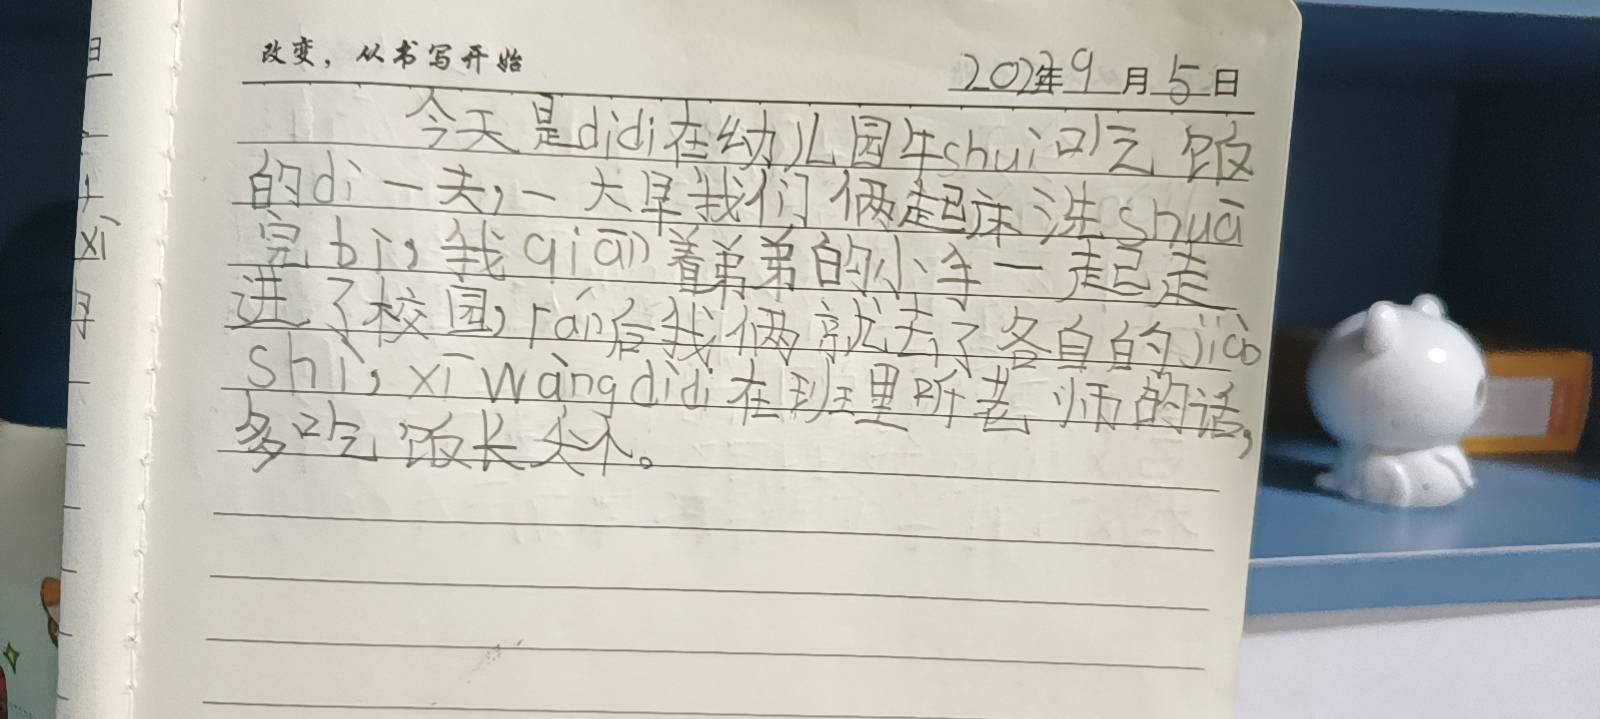 改变，从书写开始
2023年9月5日
今天是didi在幼儿园午shui吃饭
的di一天，一大早我们俩起床洗shuā
完bì，我qiān着弟弟的小手一起走
进了校园，rán后我俩就去了各自的jiào
shì，xī wàng didi在班里听老师的话，
多吃饭长大个。
xī